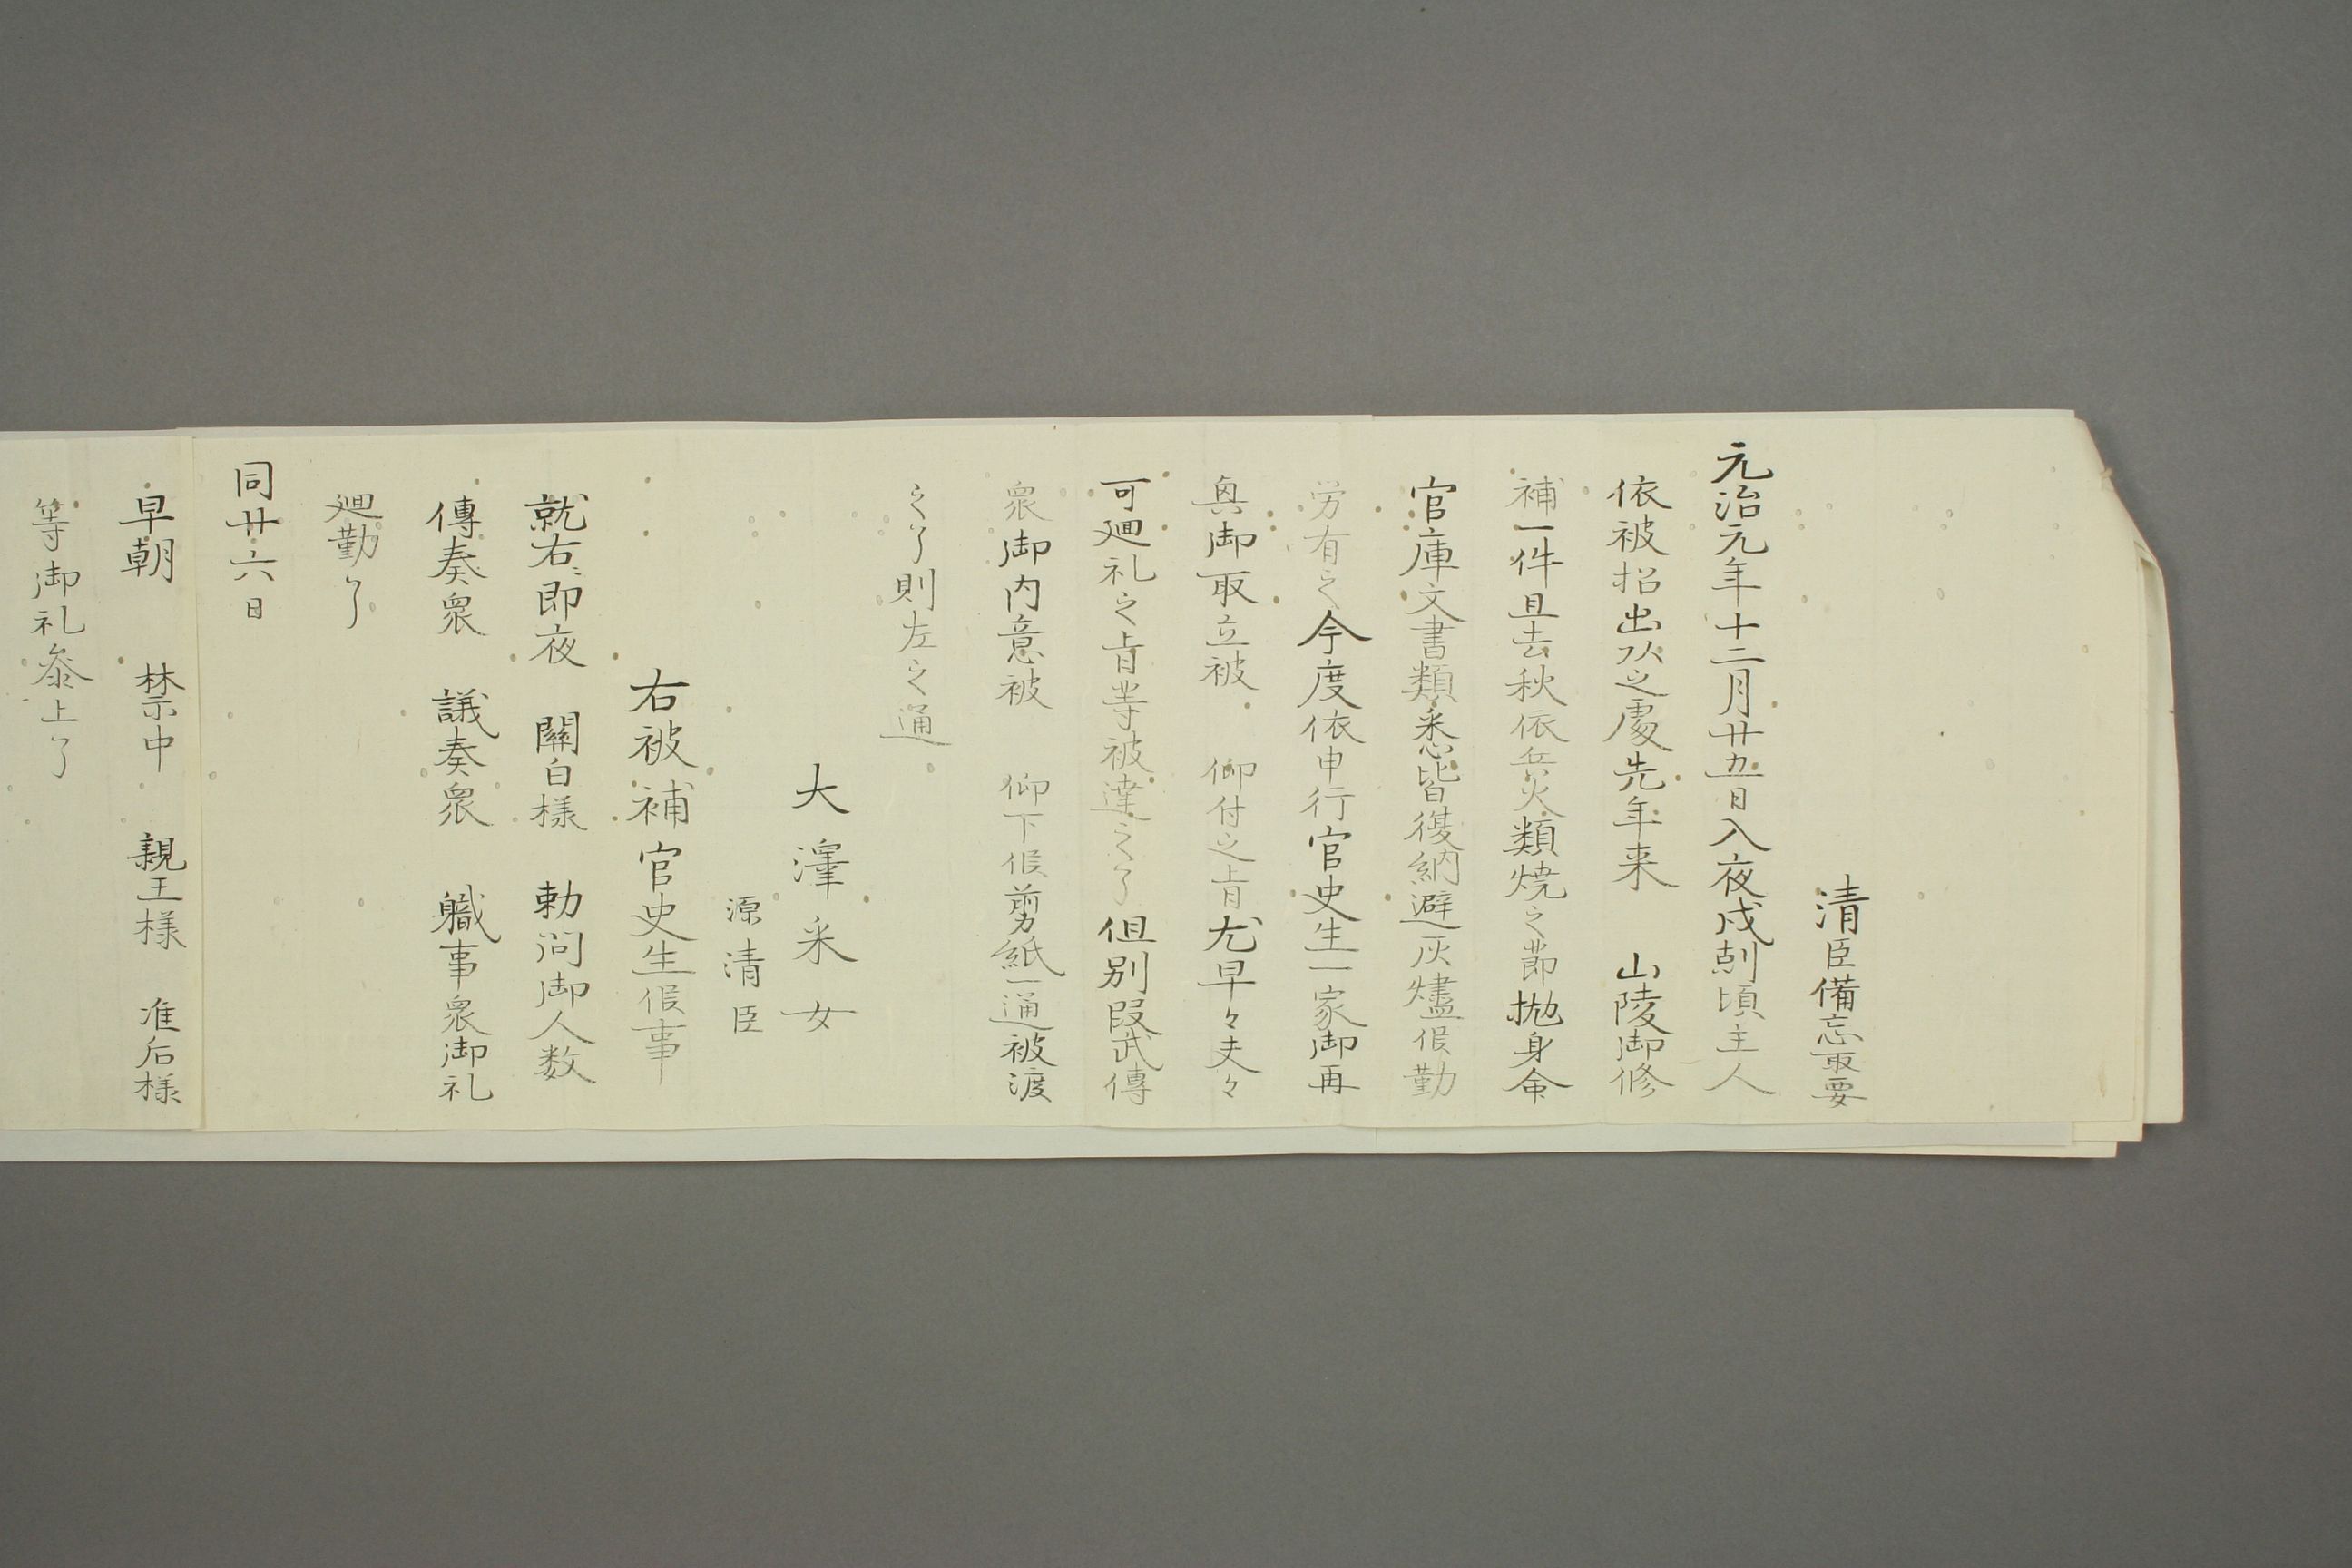 清臣備忘最要
元治元年十二月廿五日入夜戌剋頃主人
依被招出以之處先年来　山陵御修
補一件且去秋依兵火類焼之節抛身命
官庫文書類悉皆復納避灰燼候勤
労有之今度依申行官史生一家御再
興御取立被　仰付之旨尤早々夫々
可廻礼之旨等被達之了但別段武傳
衆御内意被　仰下候剪紙一通被渡
之了則左之通
大澤采女
源清臣
右被補官史生候事
就右即夜　關白様　勅問御人数
傳奏衆　議奏衆　職事衆御礼
廻勤了
同廿六日
早朝　禁中　親王様　准后様
等御礼参上了